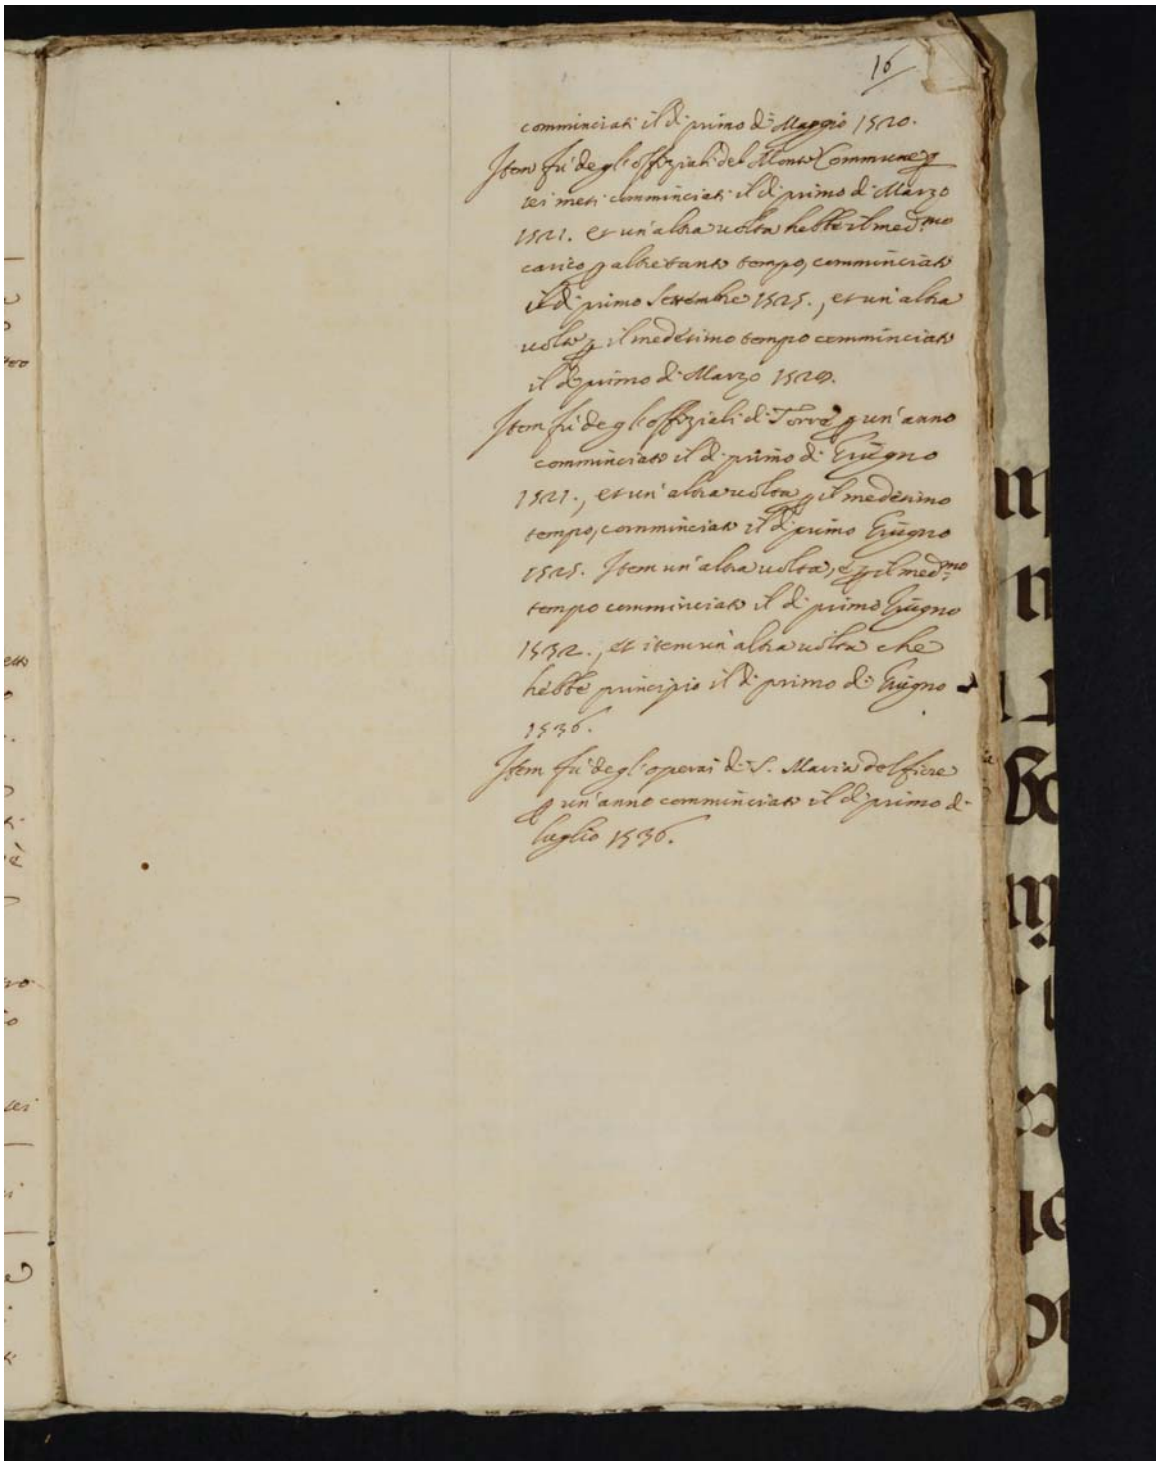 16
comminciati il dì primo di Maggio 1520.
Item fù degl'offiziali del Monte Commune p
sei mesi comminciati il dì primo di Marzo
1521. et un'altra uolta hebbe il med.mo
carico p altretanto tempo, comminciato
il dì primo Settembre 1525., et un'altra
uolta p il medesimo tempo comminciato
il dì primo di Marzo 1529.
Item fù degl'offiziali di Torre p un'anno
comminciato il dì primo di Giugno
1521., et un'altra uolta p il medesimo
tempo, comminciato il dì primo Giugno
1525. Item un'altra uolta, e p il med.mo
tempo comminciato il dì primo Giugno
1532., et item un'altra uolta che
hebbe principio il dì primo di Giugno
1536.
Item fù degl'operai di S. Maria del fiore
p un'anno comminciato il dì primo di
luglio 1536.